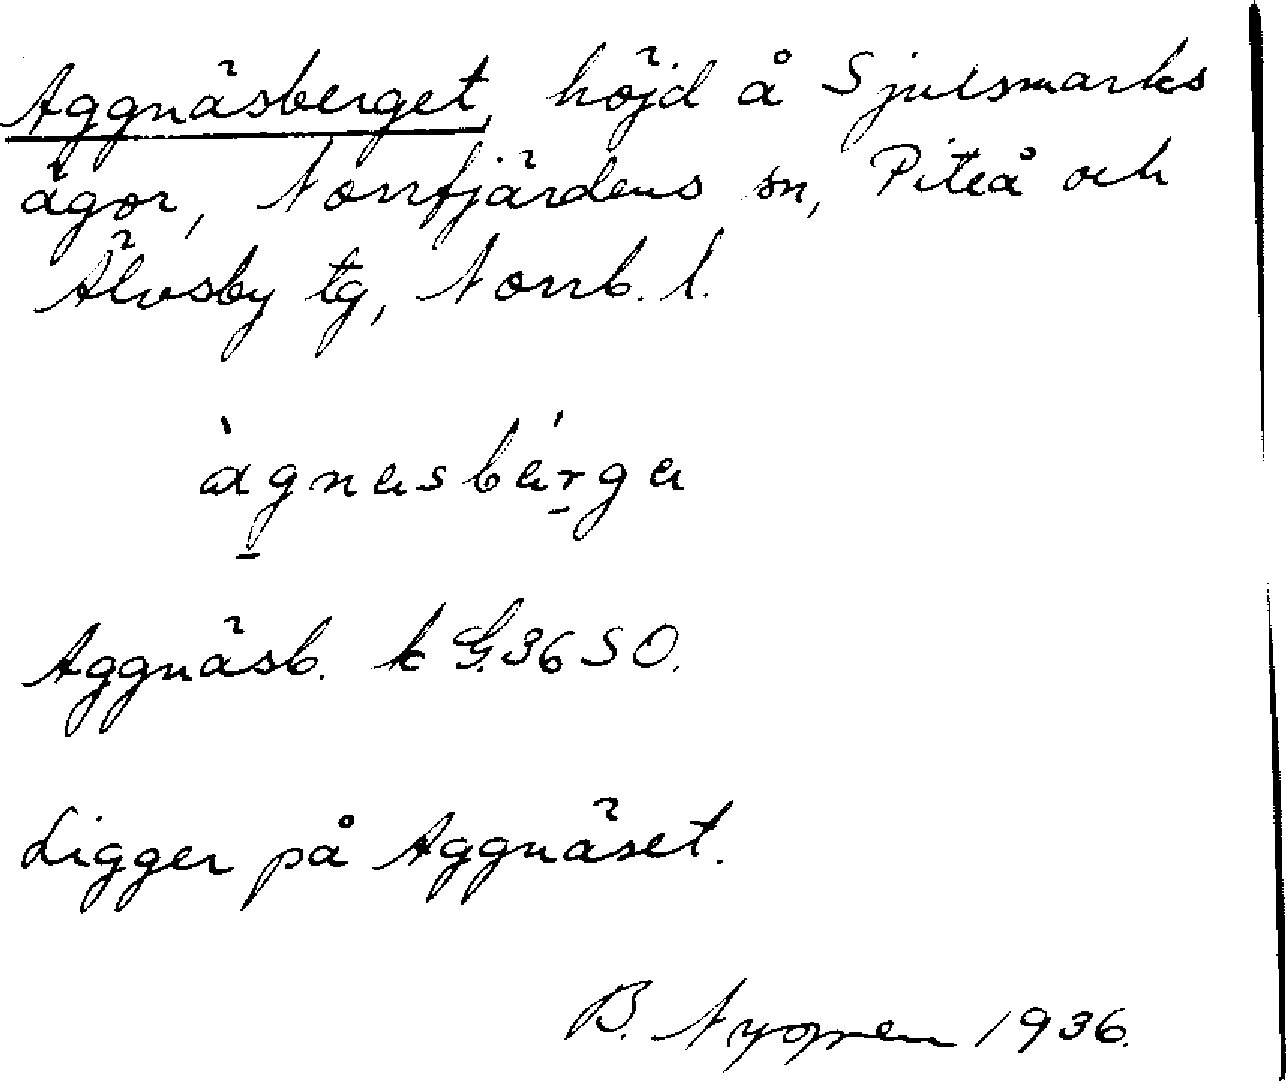 Aggnäsberget, höjd å Sjulsmarks
ägor, Norrfjärdens sn, Piteå och
Älvsby tg, Norrb. l.
àgnasbérga
Aggnäsb. k G.36 SO.
Ligger på Aggnäset.
B. 1936.